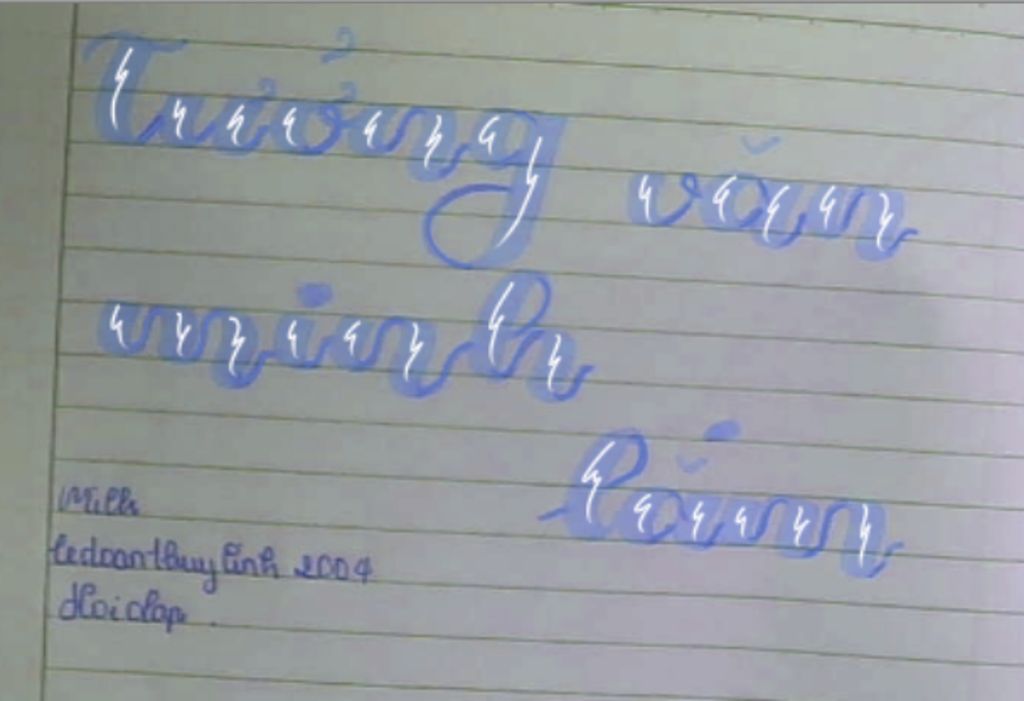 Tưởng văn
minh
lắm
ledoanthuylinh 2004
Hoidap .